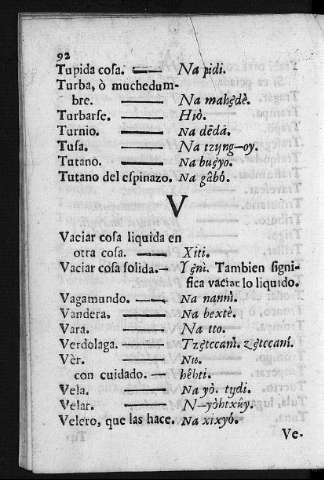 92
Tupida cosa. —— Na pidi.
Turba, ò muchedum-
bre. —— Na mahȩ̂dè.
Turbarse. —— Hiò.
Turnio. —— Na dêdá.
Tusa. —— Na tzyng-oy.
Tutano. —— Na buȩ́yo.
Tutano del espinazo. Na gâbò.
V
Vaciar cosa liquida en
otra cosa. —— Xiti.
Vaciar cosa solida.— Yȩ̂ni. Tambien signi-
fica vaciar lo liquido.
Vagamundo. —— Na nanni.
Vandera. —— Na bextè.
Vara. —— Na tto.
Verdolaga. —— Tzȩ̂tccaní. zȩ̂tccaní.
Vèr. —— Nu.
con cuidado. —— hêhti.
Vela. —— Na yò. tydi.
Velar. —— N-yòhtxûy.
Velero, que las hace. Na xixyó.
Ve-